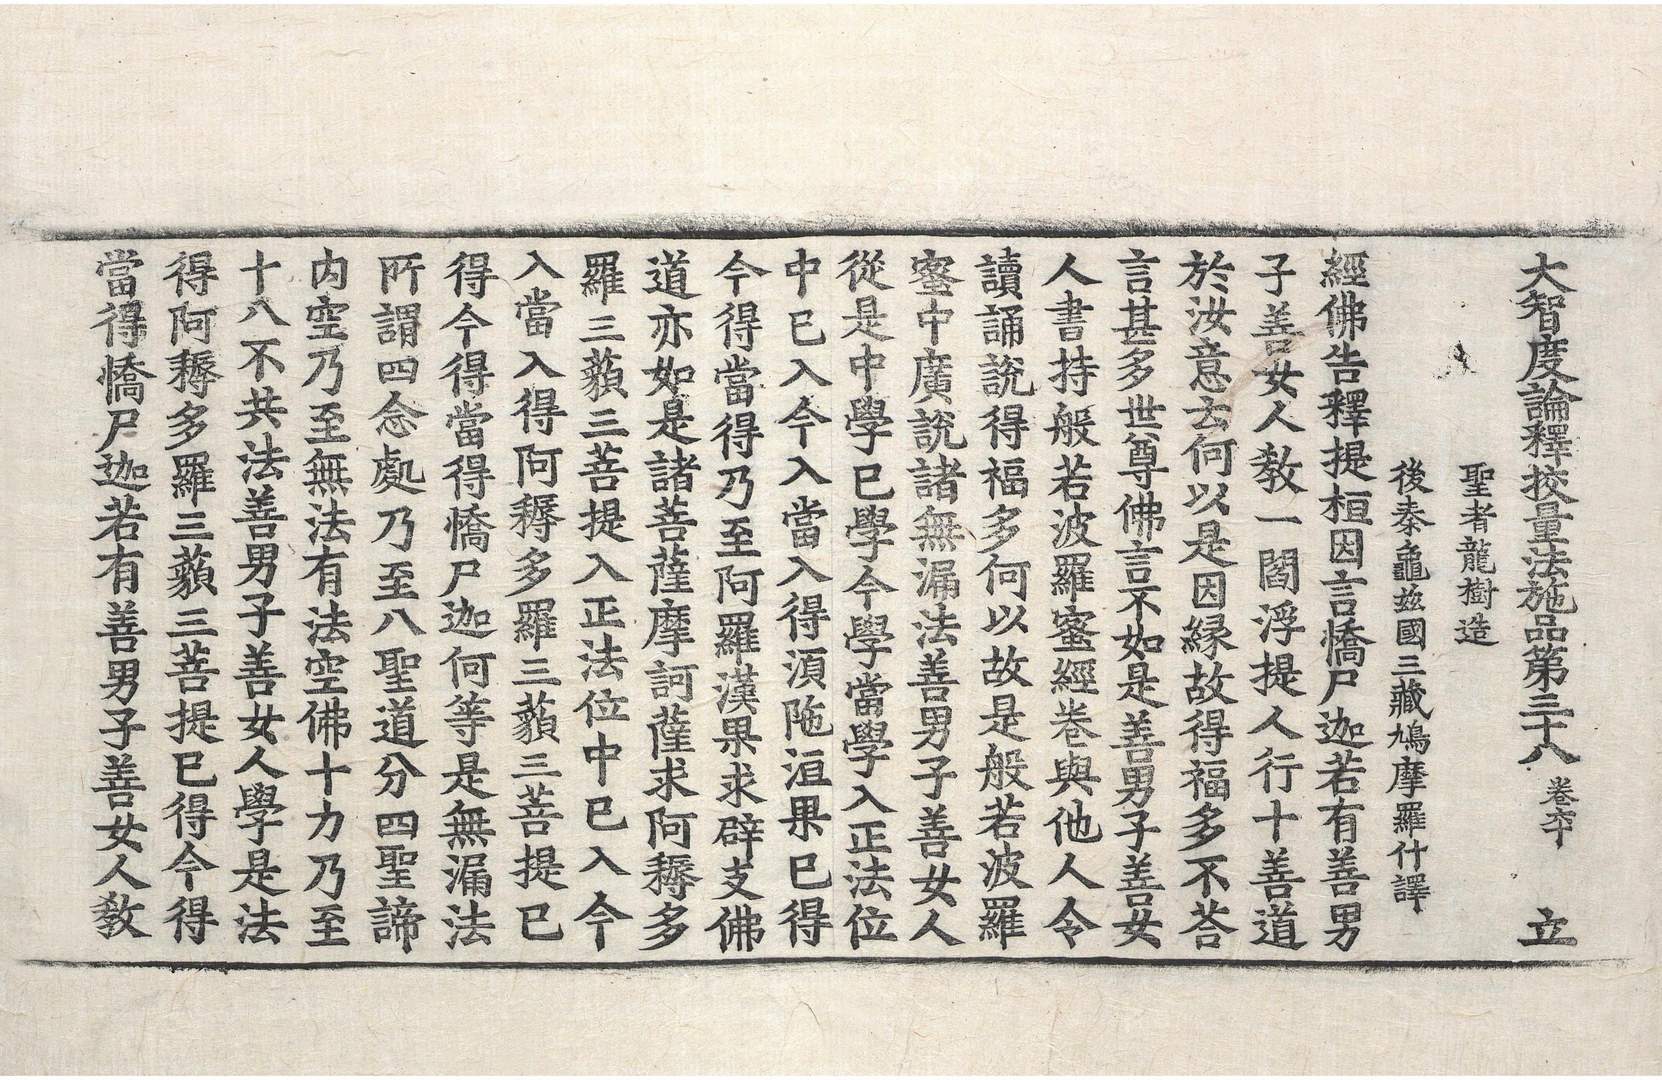 大智度論釋挍量法施品第三十八 卷六十 立
聖者龍樹造
後秦龜玆國三藏鳩摩羅什譯
經佛告釋提桓因言憍尸迦若有善男
子善女人教一閻浮提人行十善道
於汝意云何以是因緣故得福多不荅
言甚多世尊佛言不如是善男子善女
人書持般若波羅蜜經卷與他人令
讀誦說得福多何以故是般若波羅
蜜中廣說諸無漏法善男子善女人
從是中學已學今學當學入正法位
中已入今入當入得湏陁洹果已得
今得當得乃至阿羅漢果求辟支佛
道亦如是諸菩薩摩訶薩求阿耨多
羅三藐三菩提入正法位中已入今
入當入得阿耨多羅三藐三菩提已
得今得當得憍尸迦何等是無漏法
所謂四念處乃至八聖道分四聖諦
内空乃至無法有法空佛十力乃至
十八不共法善男子善女人學是法
得阿耨多羅三藐三菩提已得今得
當得憍尸迦若有善男子善女人敎